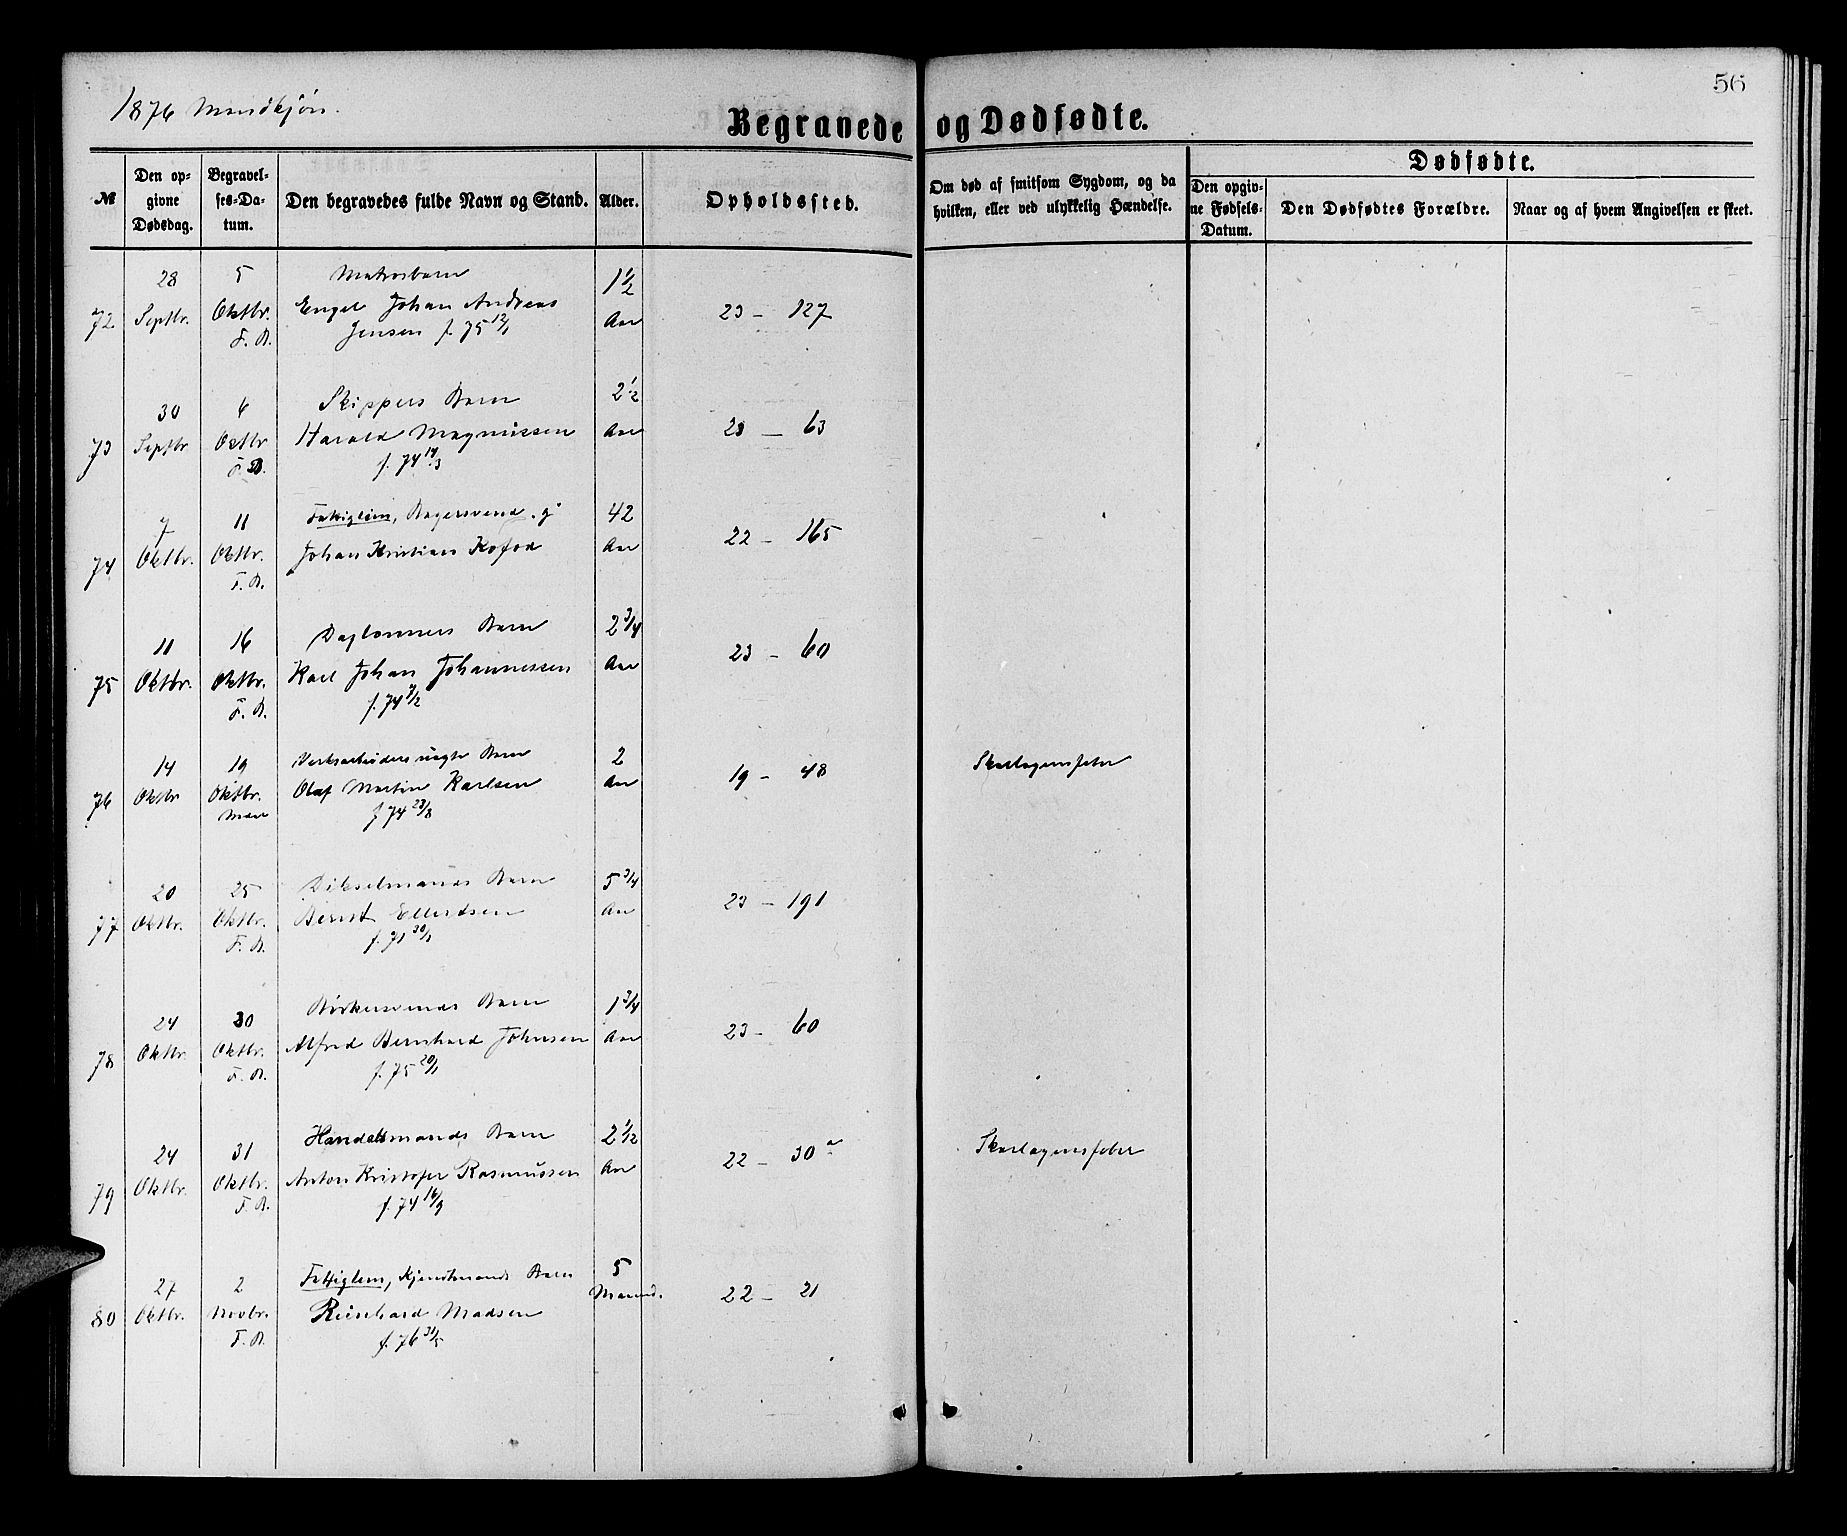 56
1876 Mandkjøn.
Begravede og Dødfødte.
Dødfødte.
№
Den opgivne Dødsdag.
Begravelses-Datum.
Den begravedes fulde Navn og Stand.
Alder.
Opholdssted.
Om død af smitsom Sygdom, og da hvilken, eller ved ulykkelig Hændelse.
Den opgivne Fødsels-Datum.
Den Dødfødtes Forældre.
Naar og af hvem Angivelsen er skeet.
28 5 Matrosbarn 1½
72 Septbr. Oktbr. Engel Johan Andreas Aar 23 - 127
F. B. Jensen f. 75 12/1
30 6 Skippers Barn 2½
73 Septbr Oktbr Harald Magnussen Aar 23 - 63
F. B. f. 74 14/3
7 11 Fattiglem, Bagersvend. g 42
74 Oktbr. Oktbr. Johan Kristian Kofod Aar 22 - 165
F. B.
11 16 Daglønners Barn 2 3/4
75 Oktbr. Oktbr. Karl Johan Johannessen Aar 23 - 60
F. B. f. 74 7/2
14 19 Verksarbeiders uægte Barn 2
76 Oktbr Oktbr. Olaf Martin Karlsen Aar 19 - 48 Skarlagensfeber
f 74 23/8
20 25 Barn 5 3/4
77 Oktbr. Oktbr. Bernt Ellertsen Aar 23 - 191
F. B. f. 71 30/1
24 30 Bødkersvends Barn 1 3/4
78 Oktbr. Oktbr. Alfred Bernhard Johnsen Aar 23 - 60
F. B. f. 75 20/1
24 31 Handelsmands Barn 2½
79 Oktbr. Oktbr. Anton Kristofer Rasmussen Aar 22 - 30 a Skarlagensfeber
F. B. f. 74 16/9
27 2 Fattiglem, Barn 5
80 Oktbr. Novbr. Reinhard Madsen Maaned. 22 - 21
F. B. f. 76 31/5